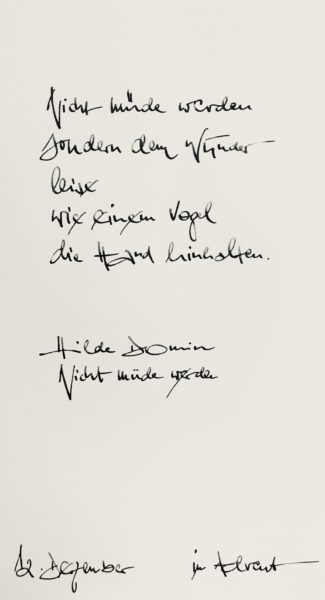 Nicht müde werden
sondern dem Wunder
leise
wie einem Vogel
die Hand hinhalten.
Hilde Domin
Nicht müde werden
12. Dezember im Advent